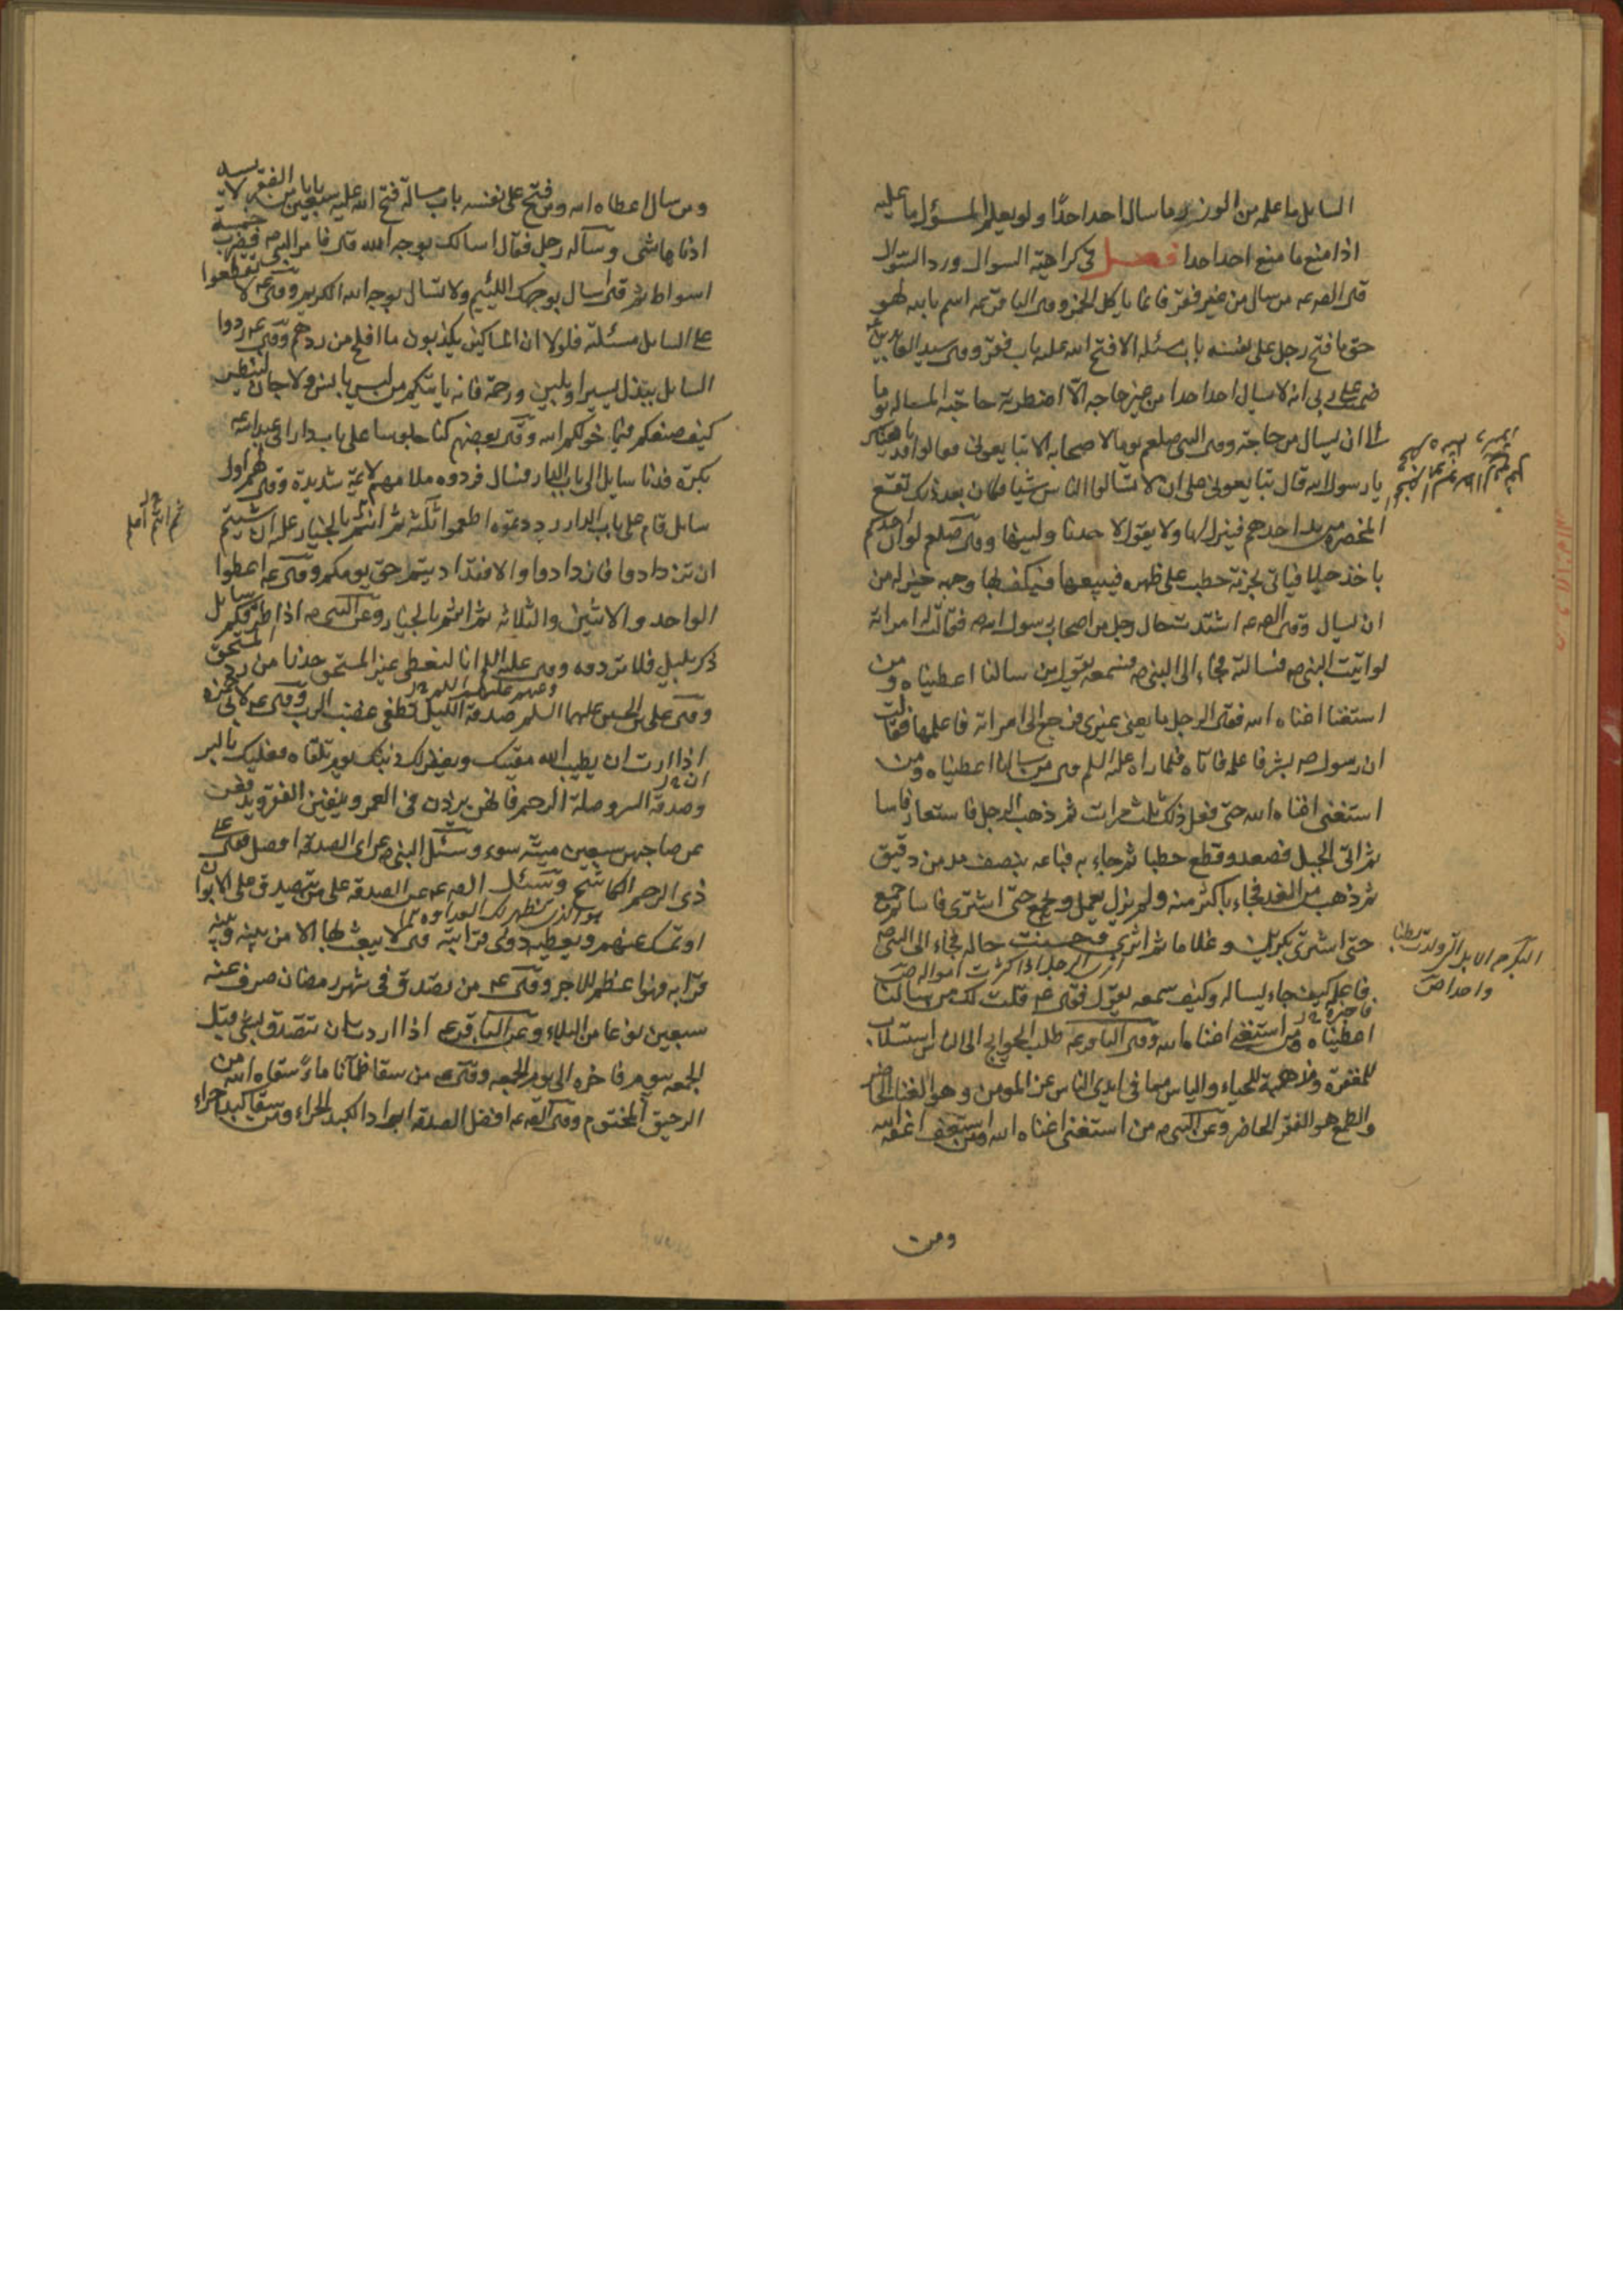 السايل ما عليه من الوزر ما سال احد احدًا ولو يعلم المسؤل ما عليه
اذا منع ما منع احد احدا فصل في كراهية السوال ورد السوال
من سال من غير فقر فانما ياكل الخمر وقى الباقر عه اقسم بالله لهو
حق ما فتح رجل على نفسه باب مسئله الا فتح الله عليه باب فقر وقى سيد العابدين
ضمنت على ربي انه لا يسال احد احدا من غير حاجه الا اضطرته حاجة المساله يوما
الا ان يسال من حاجة وقى النبي صلعم يوما لاصحابه الا تبايعوني فقالوا قد بايعناك
يا رسول الله قال تبايعوني على ان لا تسالوا الناس شيا فكان بعد ذلك تقع
المخصرة من يد احدهم فينزل لها ولا يقول لاحد ناولنيها وقى صلعم لو ان احدكم
ياخذ حبلا فياتي بحزمة حطب على ظهره فيبيعها فيكف بها وجهه خير له من
ان يسال وقى الص عه اشتدت حال رجل من اصحاب رسول الله ص فقالت له امراته
لو اتيت النبي ص فسالته فجاء الى النبي ص فسمعه يقول من سالنا اعطيناه ومن
استغنا اغناه الله فقى الرجل ما يعني غيري فرجع الى امراته فاعلمها فقالت
ان رسول الله ص بشر فاعلمه فاتاه فلما راه عليه السلم قى من سالنا اعطيناه ومن
استغنى اغناه الله حتى فعل ذلك ثلث مرات ثم ذهب الرجل فاستعار فاسا
ثم اتى الجبل فصعده وقطع حطبا ثم جاء به فباعه بنصف مد من دقيق
ثم ذهب من الغد فجاء باكثر منه ولم يزل يعمل ويجمع حتى اشترى فاسا ثم جمع
حتى اشترى بكرين وغلاما ثم اثرى وحسنت حاله فجاء الى النبي ص
اثرى الرجل اذا كثرت امواله ص
فاعلمه كيف جاء يساله وكيف سمعه يقول فقى عم قلت لك من سالنا
اعطيناه ومن استغنى اغناه الله وقى الباقر عه طلب الحوايج الى الناس استلاب
للمفقرة ومذهبة للحياء والياس مما في ايدي الناس عز المومن وهو الغنا الحاضر
والطمع هو الفقر الحاضر وعن النبي ص من استغنى اغناه الله ومن استعف اعفه الله
ومن
البكر من الابل التي ولدت بطنا
واحدا ص
ومن سال اعطاه الله ومن فتح على نفسه باب مسالة فتح الله عليه سبعين بابا من الفقر لا يسد
ادناها شي وساله رجل فقال اسالك بوجه الله قى فامر النبي ص فضرب خمسة
اسواط ثم قى سال بوجهك اللئيم ولا تسال بوجه الله الكريم وقى عه لا تقطعوا
على السايل مسئلته فلولا ان المساكين يكذبون ما افلح من ردهم وقى عم ردوا
السايل ببذل يسير او بلين ورحمة فانه ياتيكم من ليس بانس ولا جان لينظر
كيف صنعكم فيما خولكم الله وقى بعضهم كنا جلوسا على باب دار ابي عبد الله عه
بكرة فدنا سايل الى باب الدار فسال فردوه فلامهم لايمة شديدة وقى لهم اول
سايل قام على باب الدار رددتموه اطعموا ثلثة ثم انتم بالخيار عليه ان شيتم
ان تزدادوا فازدادوا والا فقد اديتم حق يومكم وقى عه اعطوا
الواحد والاثنين والثلاثة ثم انتم بالخيار وعن النبي ص اذا طرقكم سايل
ذكر بليل فلا تردوه وقى عليه السلم انا لنعطي غير المستحق حذرا من رد المستحق
وقى علي بن الحسين عليهما السلم صدقة الليل تطفى غضب الرب وقى عم لابي حمزة
اذا اردت ان يطيب الله ميتتك ويغفر لك ذنبك يوم تلقاه فعليك بالبر
وصدقة السر وصلة الرحم فانهن يزدن في العمر وينفين الفقر ويدفعن
عن صاحبهن سبعين ميتة سوء وسئل النبي ص عن اي الصدقة افضل فقى على
ذي الرحم الكاشح وسئل الص عه عن الصدقة على من يتصدق على الابواب
او يمسك عنهم ويعطيه ذوي قرابته قى لا يبعث بها الا من بينه وبينه
قرابه فهوا عظم للاجر وقى عه من تصدق في شهر رمضان صرف عنه
سبعين نوعا من البلاء وعن الباقر عه اذا اردت ان تتصدق بشي قبل
الجمعه بيوم فاخره الى يوم الجمعه وقى عه من سقا ظمآنا ماءً سقاه الله من
الرحيق المختوم وقى الص عه افضل الصدقة ابراد الكبد الحراء ومن سقا كبدا حراء